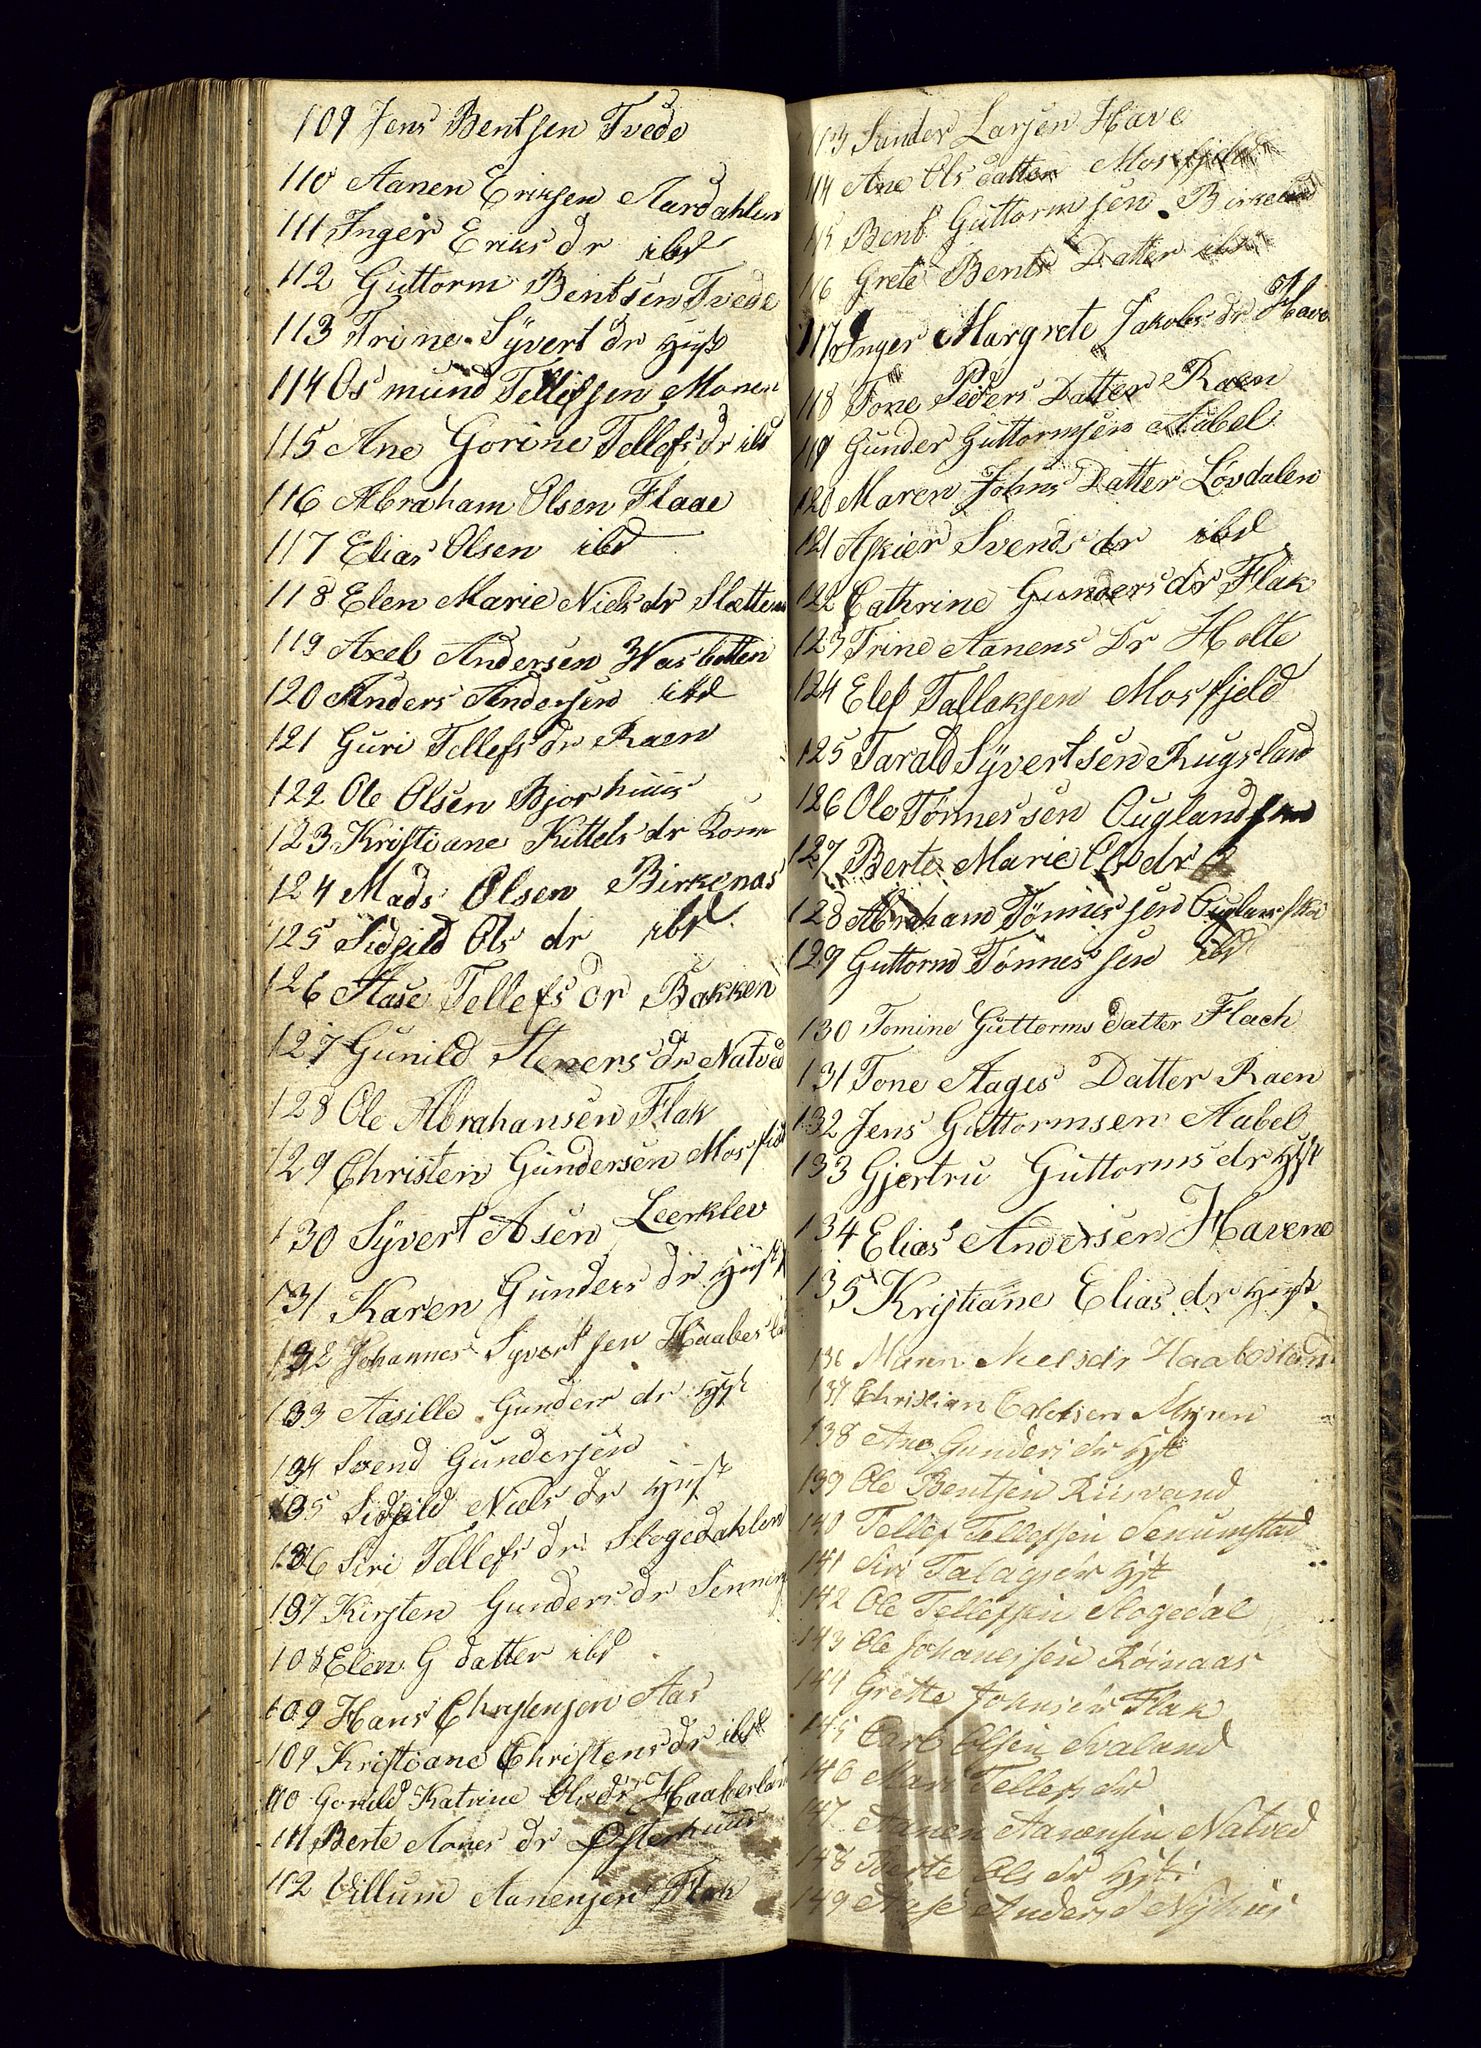 109 Jens Bentsen Tvede
110 Aanen Eriksen Aardahlen
111 Inger Eriks dr ibd
112 Guttorm Bentsen Tvede
113 Trine Syvert dr Hust
114 Osmund Tellefsen Monen
115 Ane Gorine Tellefs dr ibd
116 Abraham Olsen Flaae
117 Elias Olsen ibd
118 Elen Marie Niels dr Slætten
119 Axel Andersen Wasbotten
120 Anders Andersen ibd
121 Guri Tellefs dr Raen
122 Ole Olsen Bjorhuus
123 Kristiane Kittels dr
124 Mads Olsen Birkenas
125 Sidsild Ols dr ibd
126 Aase Tellefs dr Bakken
127 Gunild Steners dr Natved
128 Ole Abrahansen Flak
129 Christen Gundersen Mosfield
130 Syvert Asen Leerklev
131 Karen Gunders dr Hust
132 Johannes Syvertsen Haabesland
133 Aasille Gunders dr Hust
134 Svend Gundersen
135 Sidsild Niels dr Hust
136 Siri Tellefs dr Slogedahlen
137 Kirsten Gunders dr
108 Elen G datter ibd
109 Hans Christensen Aas
109 Kristiane Christens dr ibd
110 Gonild Katrine Ols dr Haabesland
111 Berte Aanes dr Østerhuus
112 Villum Aanensen Flak
113 Sunder Larsen Have
114 Ane Ols datter Mosfjeld
115 Bent Guttormsen Birkeland
116 Grete Bents Datter ibd
117 Inger Margrete Jakobs dr Have
118 Tone Peders Datter Raen
119 Gunder Guttormsen Aabel
120 Maren Johns Datter Løvdalen
121 Askier Svends dr ibd
122 Cathrine Gunders dr Flak
123 Trine Aanens Dr Holte
124 Elef Tallaksen Mosfjeld
125 Tarald Syvertsen Rugsland
126 Ole Tønnessen Ougland
127 Berte Marie Ols dr
128 Abraham Tønnessen
129 Guttorm Tønnessen ibd
130 Tomine Guttorms datter Flach
131 Tone Aages Datter Raen
132 Jens Guttormsen Aabel
133 Gjertru Guttorms dr Hust
134 Elias Andersen Havene
135 Kristiane Elias dr Hust
136 Maren Nels dr Haabesland
137 Christian Calelsen
138 Ane Gunders dr Hst
139 Ole Bentsen Risvand
140 Tellef Tellefsen Senumstad
141 Siri Hst
142 Ole Tellefsen Slogedal
143 Ole Johanessen Røinaas
144 Grette Flak
145 Carl Olsen Svaland
146 Mari Tellefs dr
147 Aanen Aanensen Natved
148 Berte Ols dr Hst
149 Aase Anders d Nyhus